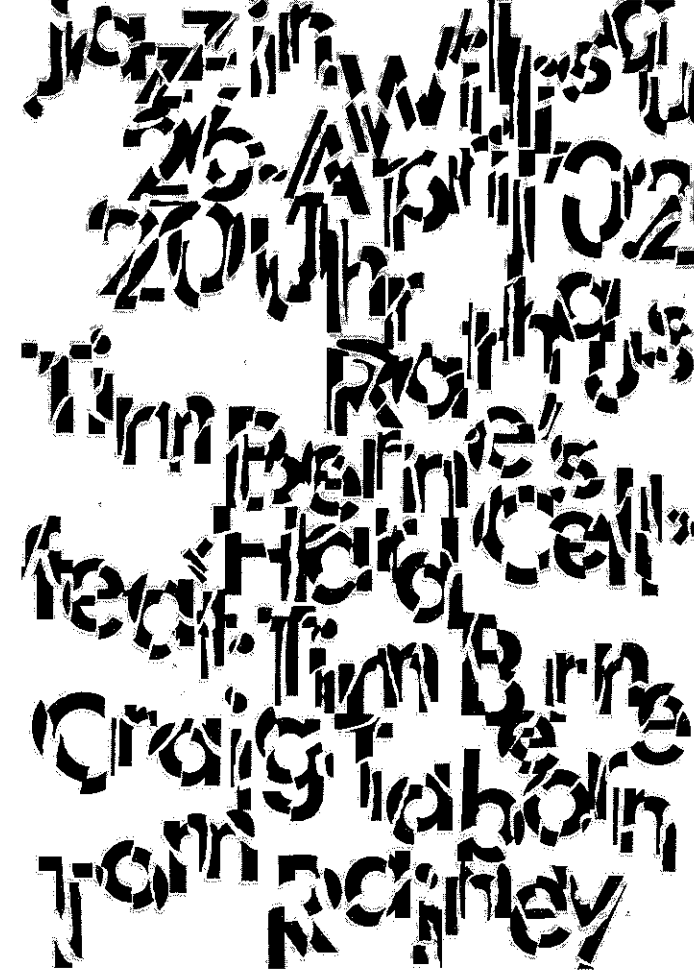 jazz in Willisau
26. April 02
20 Uhr Rathaus
Tim Berne's
Hard Cell
feat. Tim Berne
Craig Taborn
Tom Rainey